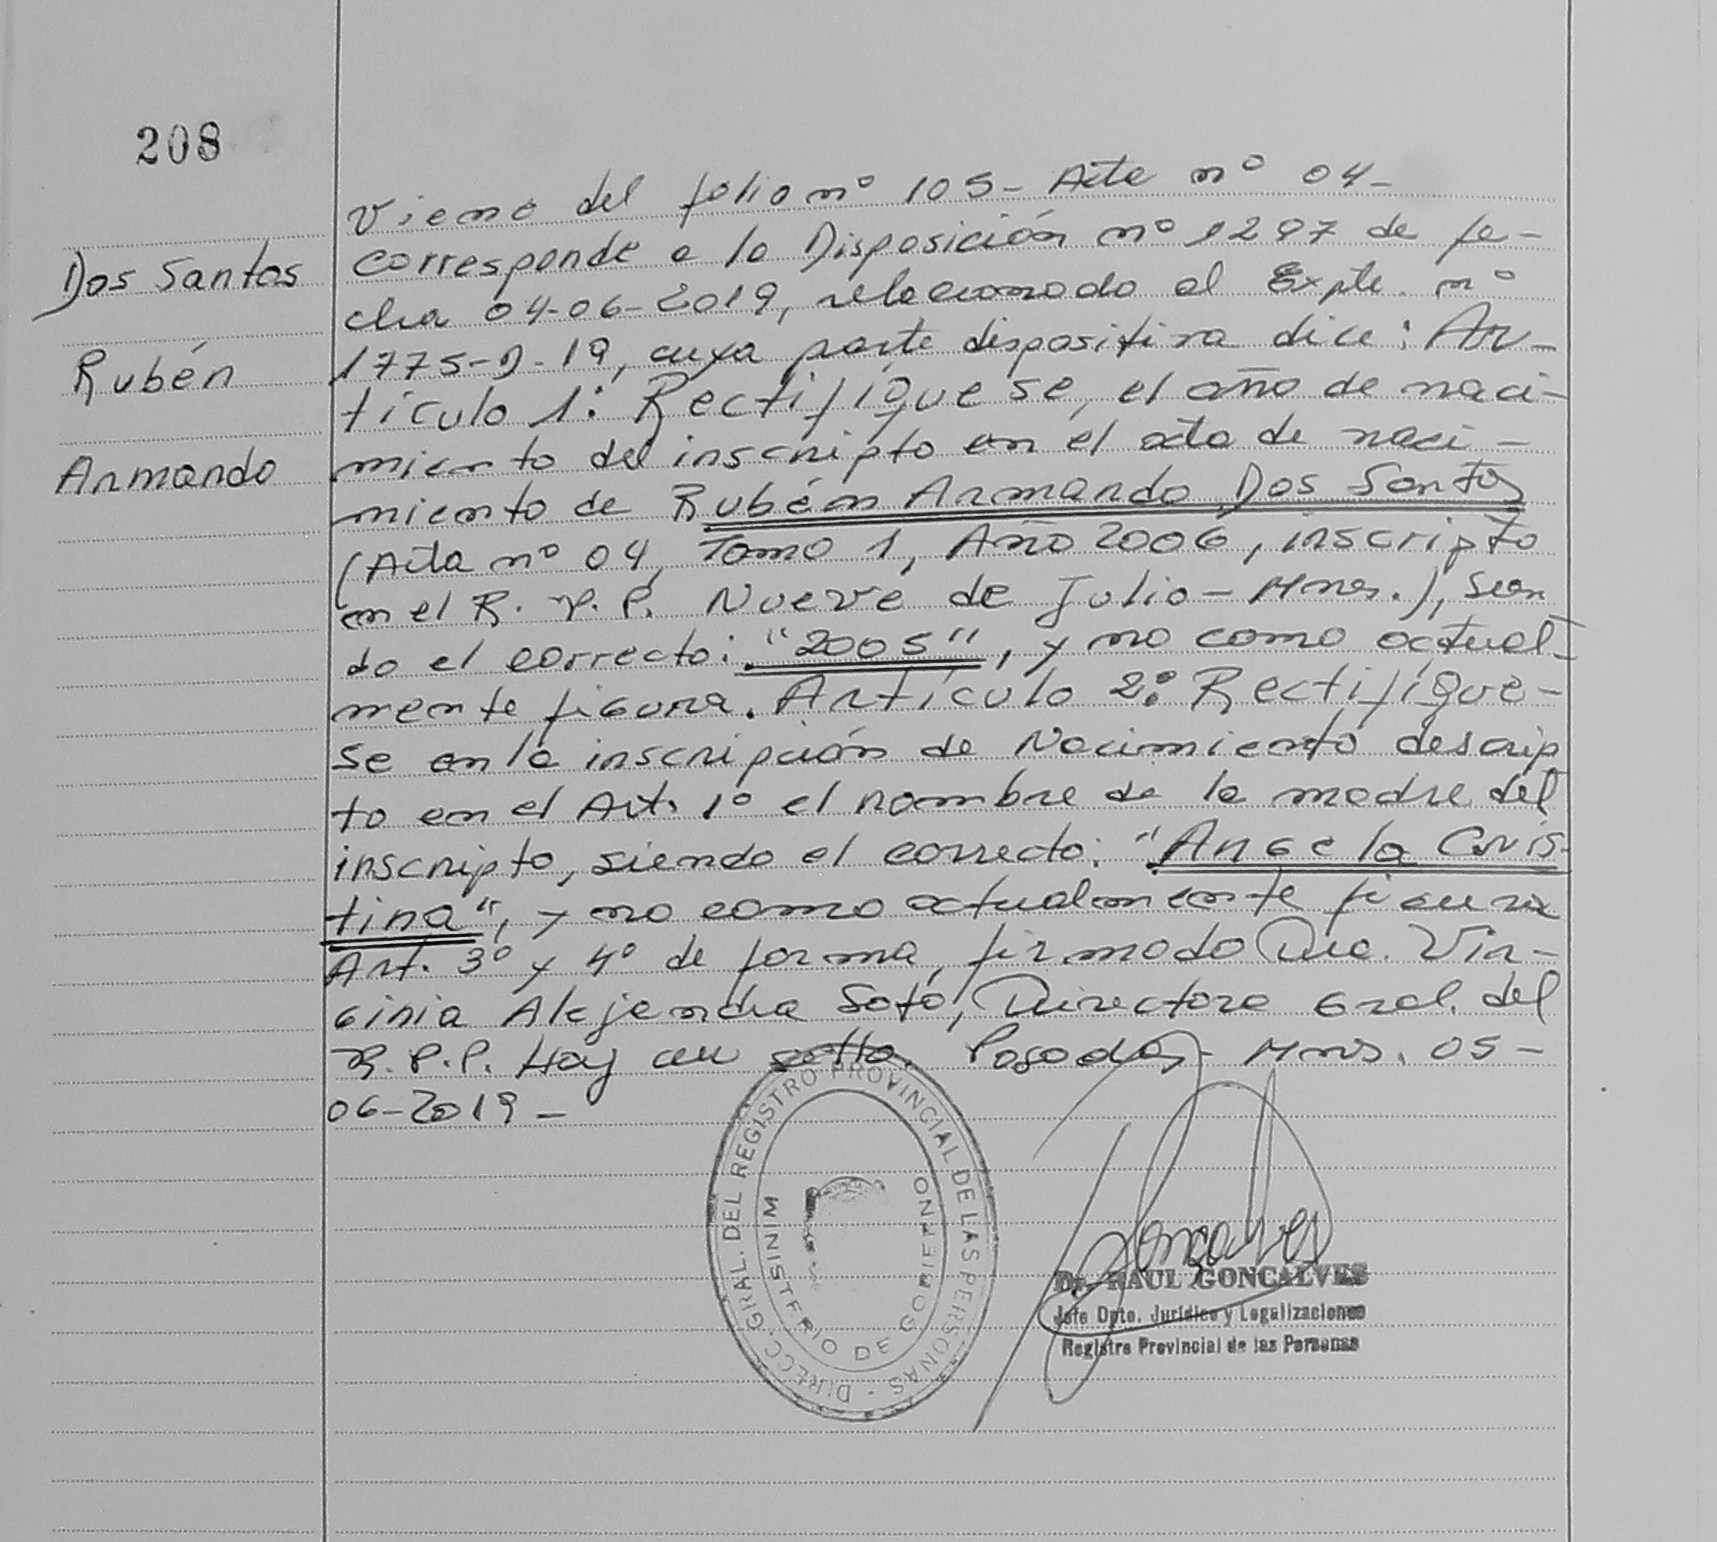 208
Dos Santos
Rubén
Armando
Viene del folio nº 105- Acta nº 04-
corresponde a la Disposición nº 1297 de fe-
cha 04-06-2019, relacionado al Expte. nº
1775-D-19, cuya parte dispositiva dice: Ar-
tículo 1: Rectifíquese, el año de naci-
miento del inscripto en el acta de naci-
miento de Rubén Armando Dos Santos
(Acta nº 04, Tomo 1, Año 2006, inscripto
en el R. P. P. Nueve de Julio - Mnes.), sien
do el correcto: "2005", y no como actual-
mente figura. Artículo 2º: Rectifíque-
se en la inscripción de Nacimiento descrip
to en el Art. 1º el nombre de la madre del
inscripto, siendo el correcto: "Angela Cris-
tina", y no como actualmente figura
Art. 3º y 4º de forma, firmado Dra. Vir-
ginia Alejandra Soto, Directora Gral. del
R. P. P. Hay un sello. Posadas - Mnes. 05-
06-2019-
DIRECC. GRAL. DEL REGISTRO PROVINCIAL DE LAS PERSONAS -
MINISTERIO DE GOBIERNO
Goncalves
Dr. RAUL GONCALVES
Jefe Dpto. Jurídico y Legalizaciones
Registro Provincial de las Personas